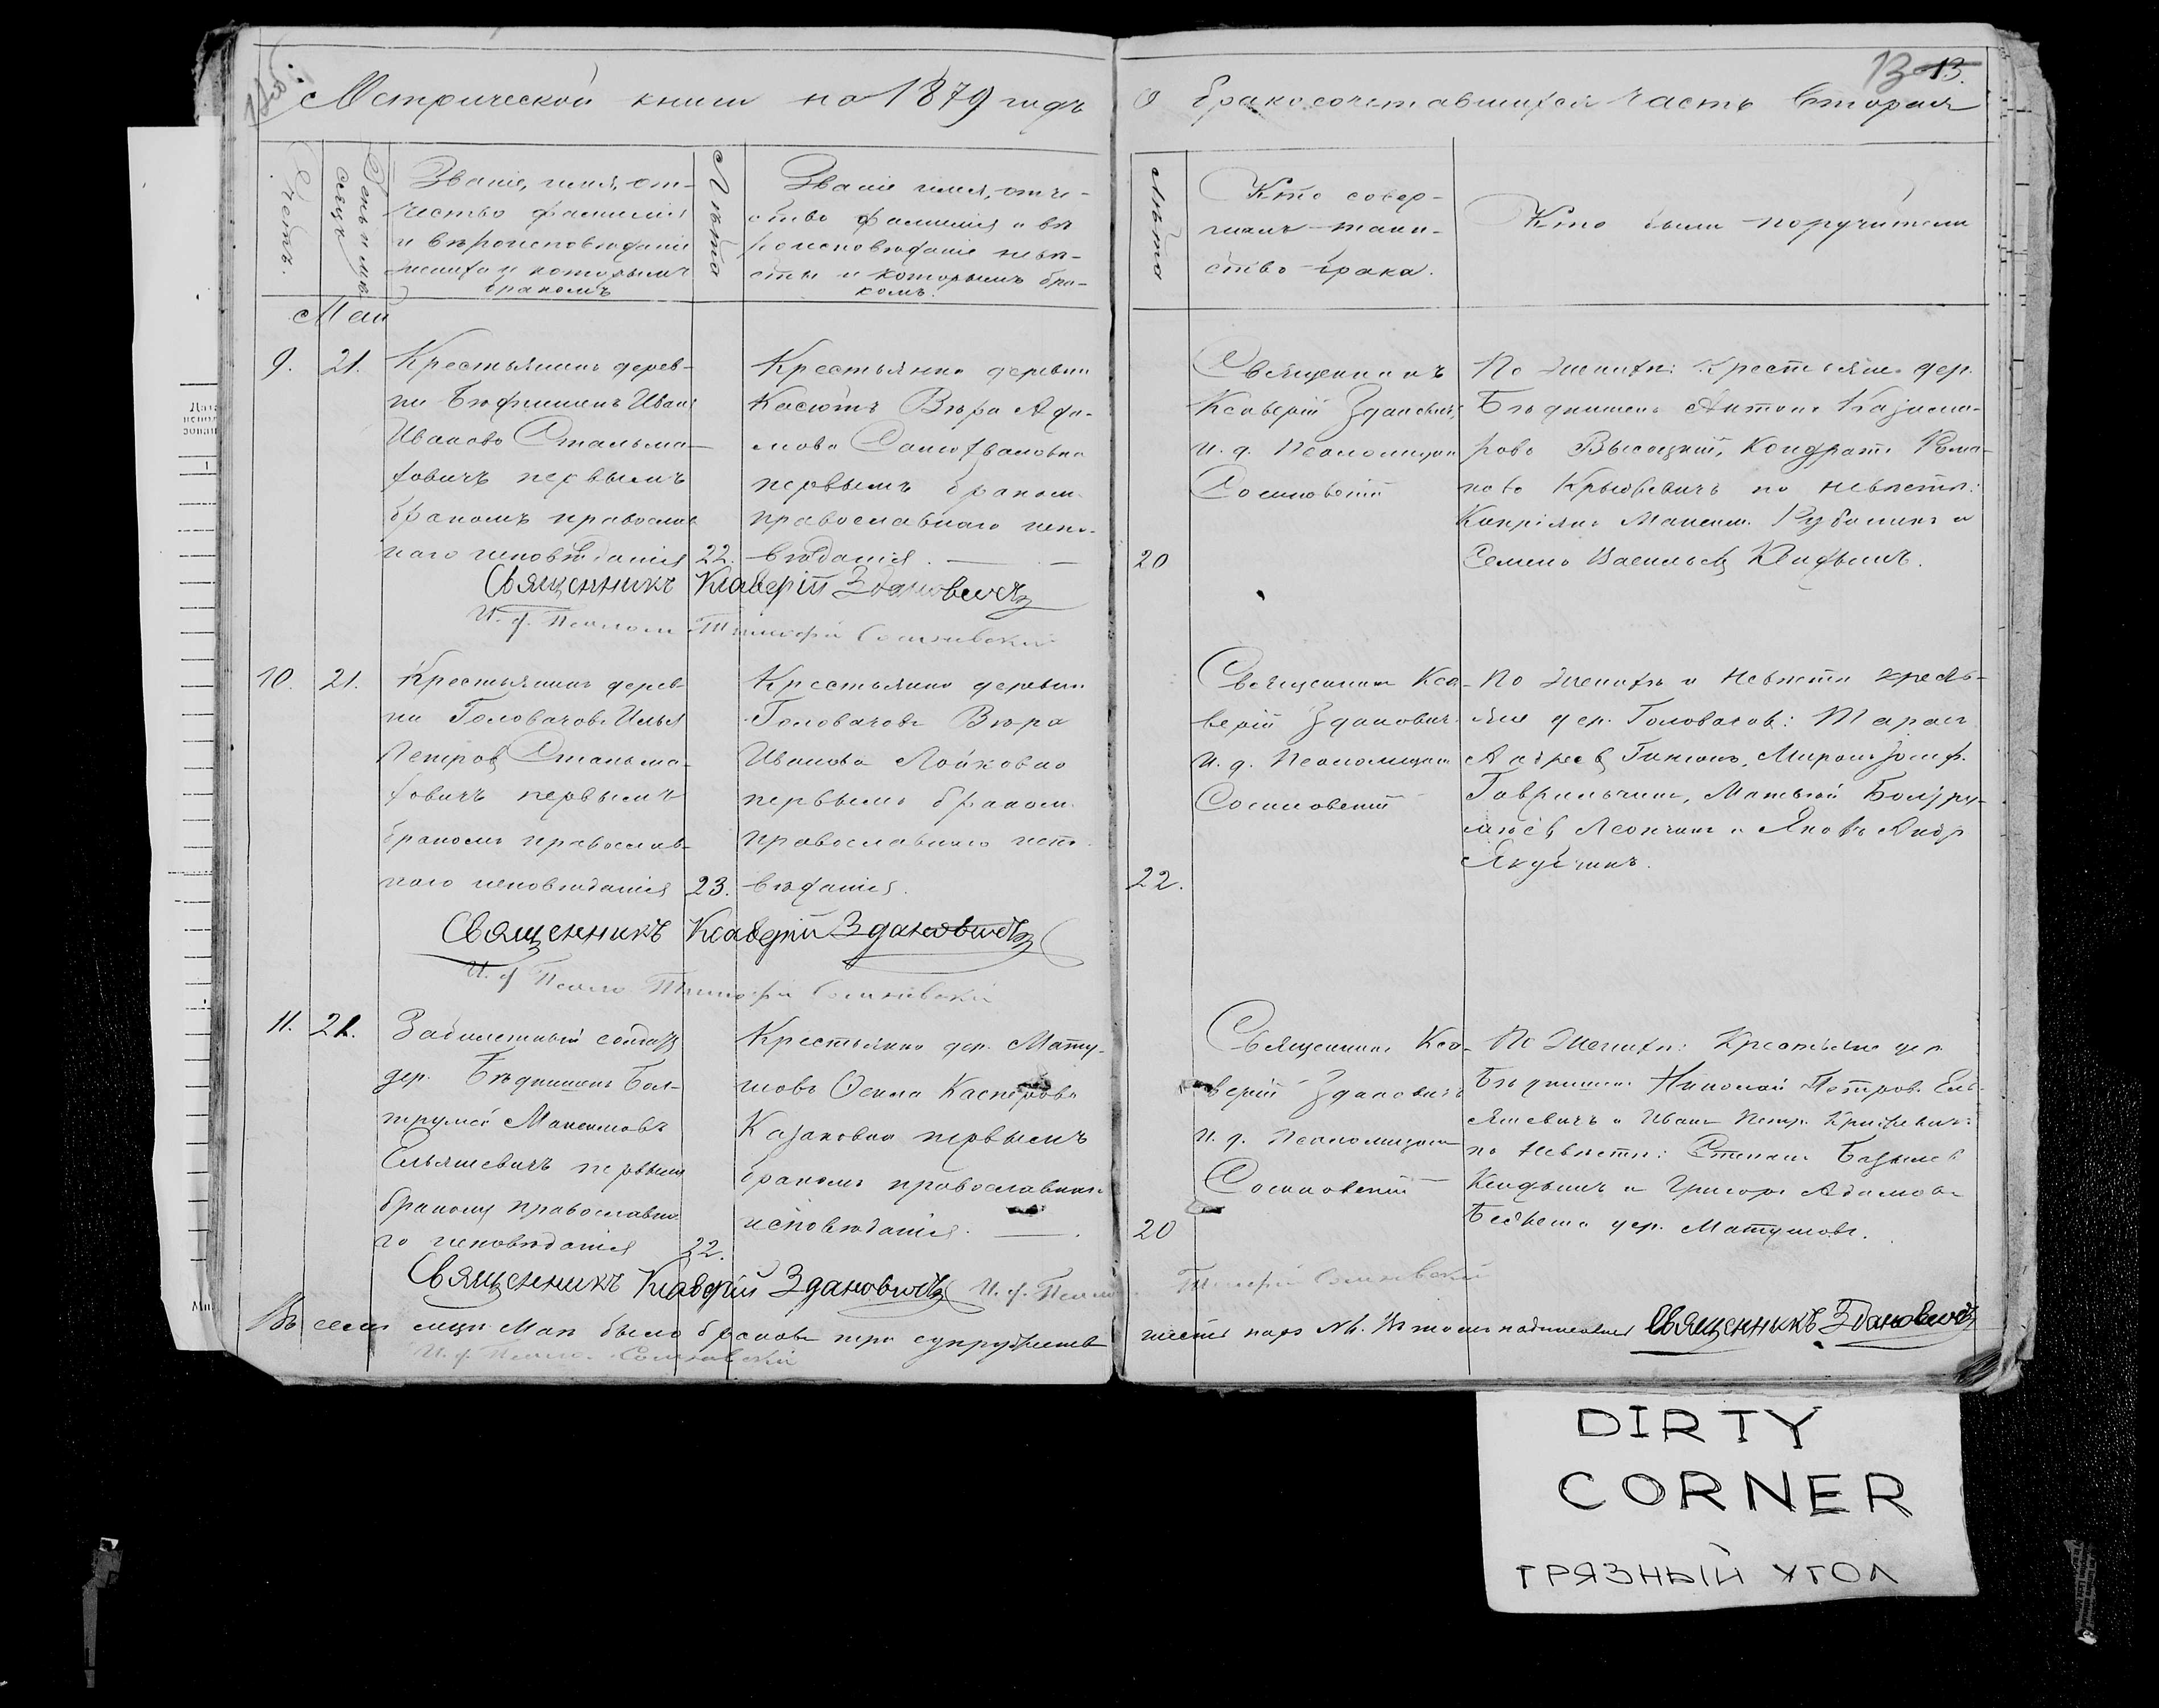 13 13.
Метрической книги на 1879 годъ
О бракосочетавшихся Часть Вторая
Счетъ.
День и мѣсяцъ
Званіе, имя, от-
чество фамилія
и вѣроисповѣданіе
жениха и которымъ
бракомъ
Лѣта
Званіе имя, отче-
ство фамилія и вѣ
роисповѣданіе невѣ-
сты и которымъ бра-
комъ.
Лѣта
Кто совер-
шалъ таин-
ство брака.
Кто были поручители
Май
9. 21.
Крестьянинъ дерев-
ни Иванъ
Ивановъ Стальма-
ховичъ первымъ
бракомъ православ
наго исповѣданія 22.
Крестьянка деревни
Касютъ Вѣра Ада-
мова
первымъ браком.
православнаго испо-
вѣданія.
20
Священникъ
Ксаверій Здановичъ,
и. д. Псаломщика
Сосиновскій
По женихѣ: Крестьяне дер.
Антонъ Казими-
ровъ Высоцкій, Кондратъ Рома-
новъ по невѣстѣ:
Кипріянъ Максим. и
Семенъ Васильевъ
Священникъ Ксаверій Здановичъ
И. д. Псалом Тимофей Сосиновскій
10. 21.
Крестьянинъ дерев-
ни Головачовъ Илья
Петровъ Стальма-
ховичъ первымъ
бракомъ православ-
наго исповѣданія 23.
Крестьянка деревни
Головачовъ Вѣра
Иванова Лойковна
первымъ бракомъ
православнаго испо-
вѣданія.
22.
Священникъ Кса-
верій Здановичъ
и. д. Псаломщика
Сосиновскій
По женихѣ и невѣстѣ кресть-
яне дер. Головачовъ: Тарасъ
Андреевъ Миронъ Іосиф.
Гаврильчикъ, Матвѣй
Леончикъ и Яковъ Андр
Якубчикъ.
Священникъ Ксаверій Здановичъ
И. д. Псало Тимофей Сосиновскій
11. 21.
Забилетный солдатъ
дер. Бол-
трумей Максимовъ
Ельяшевичъ первымъ
бракомъ православна
го исповѣданія 22.
Крестьянка дер. Мату-
шовъ Касперова
Казаковна первымъ
бракомъ православнаго
исповѣданія.
20
Священникъ Кса-
верій Здановичъ
и. д. Псаломщика
Сосиновскій
По женихѣ: Крестьяне дер.
Николай Петров. Ель-
яшевичъ и Иванъ Петр.
по невѣстѣ: Степанъ
и Григорій Адамовъ
дер. Матушовъ.
Священникъ Ксаверій Здановичъ И. д. Псалом. Тимофей Сосиновскій
Въ семъ мцѣ Маѣ было браковъ три супружества
Священникъ Здановичъ
И. д. Псало. Сосиновскій
DIRTY
CORNER
ГРЯЗНЫЙ УГОЛ